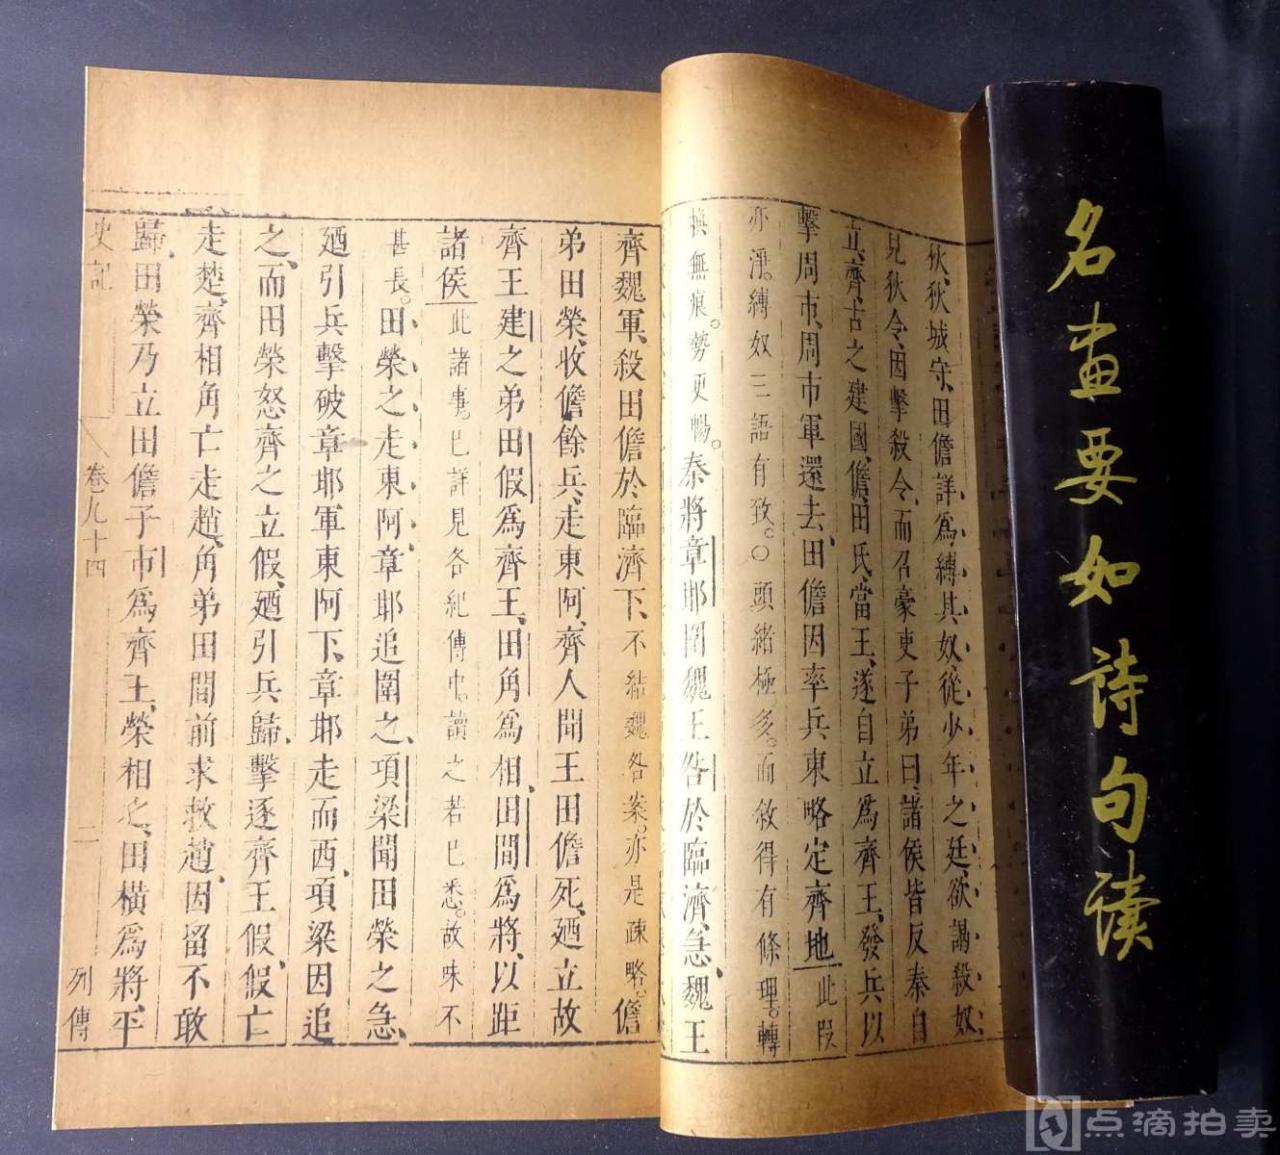 狄、狄城守、田儋詳爲縛其奴、從少年之廷、欲謁殺奴、
見狄令、因擊殺令、而召豪吏子弟曰、諸侯皆反秦自
立、齊、古之建國、儋、田氏、當王、遂自立爲齊王、發兵以
擊周市、周市軍還去、田儋因率兵東略定齊地 此段
亦淨。縛奴三語有致。〇頭緒極多。而敘得有條理。轉
換無痕。勢更暢。秦將章邯圍魏王咎於臨濟、急、魏王
齊魏軍、殺田儋於臨濟下、不結魏咎案。亦是疎略。儋
弟田榮、收儋餘兵、走東阿、齊人聞王田儋死、廼立故
齊王建之弟田假爲齊王、田角爲相、田間爲將、以距
諸侯 此諸事。已詳見各紀傳中。讀之若已悉。故味不
甚長。田榮之走東阿、章邯追圍之、項梁聞田榮之急、
廼引兵擊破章邯軍東阿下、章邯走而西、項梁因追
之、而田榮怒齊之立假、廼引兵歸、擊逐齊王假、假亡
走楚、齊相角亡走趙、角弟田間前求救趙、因留不敢
歸、田榮乃立田儋子市爲齊王、榮相之、田橫爲將、平
史記 卷九十四 二 列傳
名畫要如詩句讀
点滴拍卖